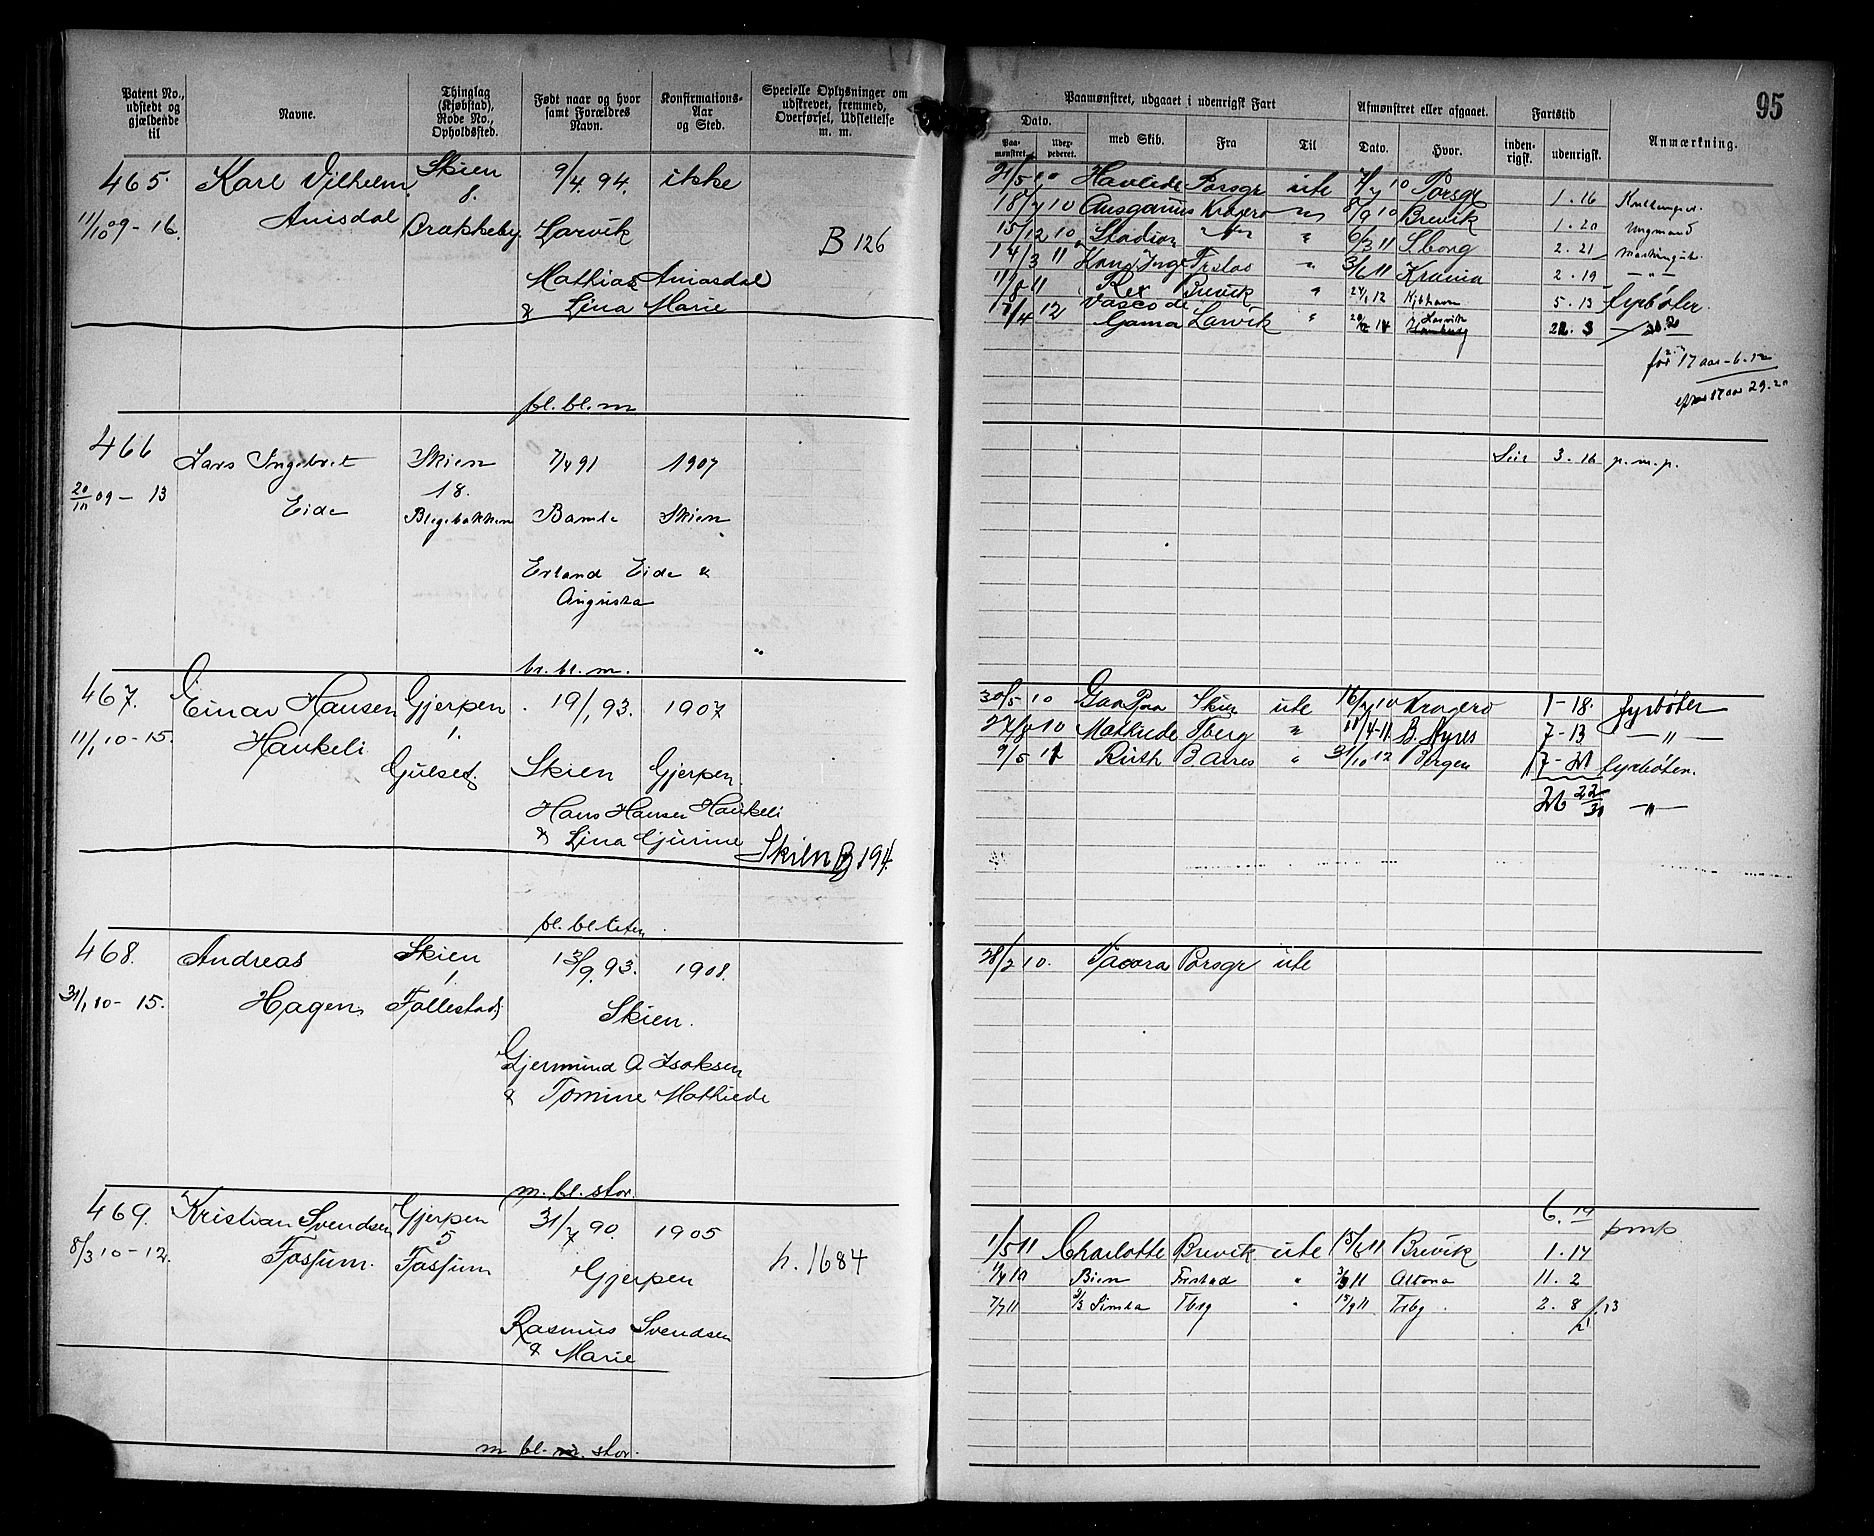 Patent No., udstedt og gjældende til
Navne.
Thinglag (Kjøbstad), Rode No., Opholdssted.
Født naar og hvor samt Forældres Navn.
Konfirmations-Aar og Sted.
Specielle Oplysninger om udskrevet, fremmed, Overførsel, Udslettelse m. m.
465.
11/10 09 - 16.
Karl Vilhelm
Anisdal
Skien
8.
Brakkeby
9/4. 94.
Larvik
ikke
Mathias Anisdal
& Lina Marie
B 126
bl. bl. m
466
20/10 09 - 13
Lars Ingebret
Eide
Skien
18.
Blegebakken
7/4 91
Bamle
1907
Skien
Erland Eide &
Augusta
br. bl. m.
467.
11/1 10 - 15.
Einar Hansen
Haukeli
Gjerpen
1.
Gulset
19/1 93.
Skien
1907
Gjerpen
Hans Hansen Haukeli
& Lina Gurine
Skien B 194.
bl. bl. liten
468.
31/1 10 - 15.
Andreas
Hagen
Skien
1
Follestad
13/9. 93.
1908.
Skien.
Gjermund A Isaksen
& Tomine Mathilde
m. bl. stor.
469.
8/3 10 - 12.
Kristian Svendsen
Fossum.
Gjerpen
5
Fossum
31/7 90.
1905
Gjerpen
Rasmus Svendsen
& Marie
h. 1684
m bl. stor.
95
Paamønstret, udgaaet i udenrigsk Fart
Afmønstret eller afgaaet.
Fartstid
Anmærkning.
Dato.
Paamønstret
Udexpederet.
med Skib.
Fra
Til
Dato.
Hvor.
indenrigsk.
udenrigsk.
21/5 10 Havlide Porsgr ute 7/7 10 Porsgr 1. 16
18/7 10 Ansgarius Kragerø 8/9 10 Brevik 1. 20 Ungmand
15/12 10 Stadion " 6/3 11 S.borg 2. 21
14/3 11 Kong Inge Frstad " 3/6 11 Krania 2. 19 — " —
11/8 11 Rex Brevik " 24/1 12 Kjbhavn 5. 13 Fyrbøter
17/4 12 Vasco de Gama Larvik " Larvik Hamburg 22. 3
før 17 aar - 6. 12
efter 17 aar 29. 20
3. 16 p. m. p.
30/5 10 Skien ute 16/7 10 Kragerø 1 - 18. fyrbøter
27/8 10 Mathilde Tberg " 11/4 - 11. B. Ayres 7 - 13 — " —
9/5 11 Ruth B. Aires " 31/10 12 Bergen fyrbøter.
— " —
28/2 10. Tacora Porsgr ute
6. 19 pmp
1/5 11 Charlotte Brevik ute 15/6 11 Brevik 1. 14
Bien Frstad " Altona 11. 2
7/7 11 Simla Tbrg " 15/9 11 Tsbg. 2. 8